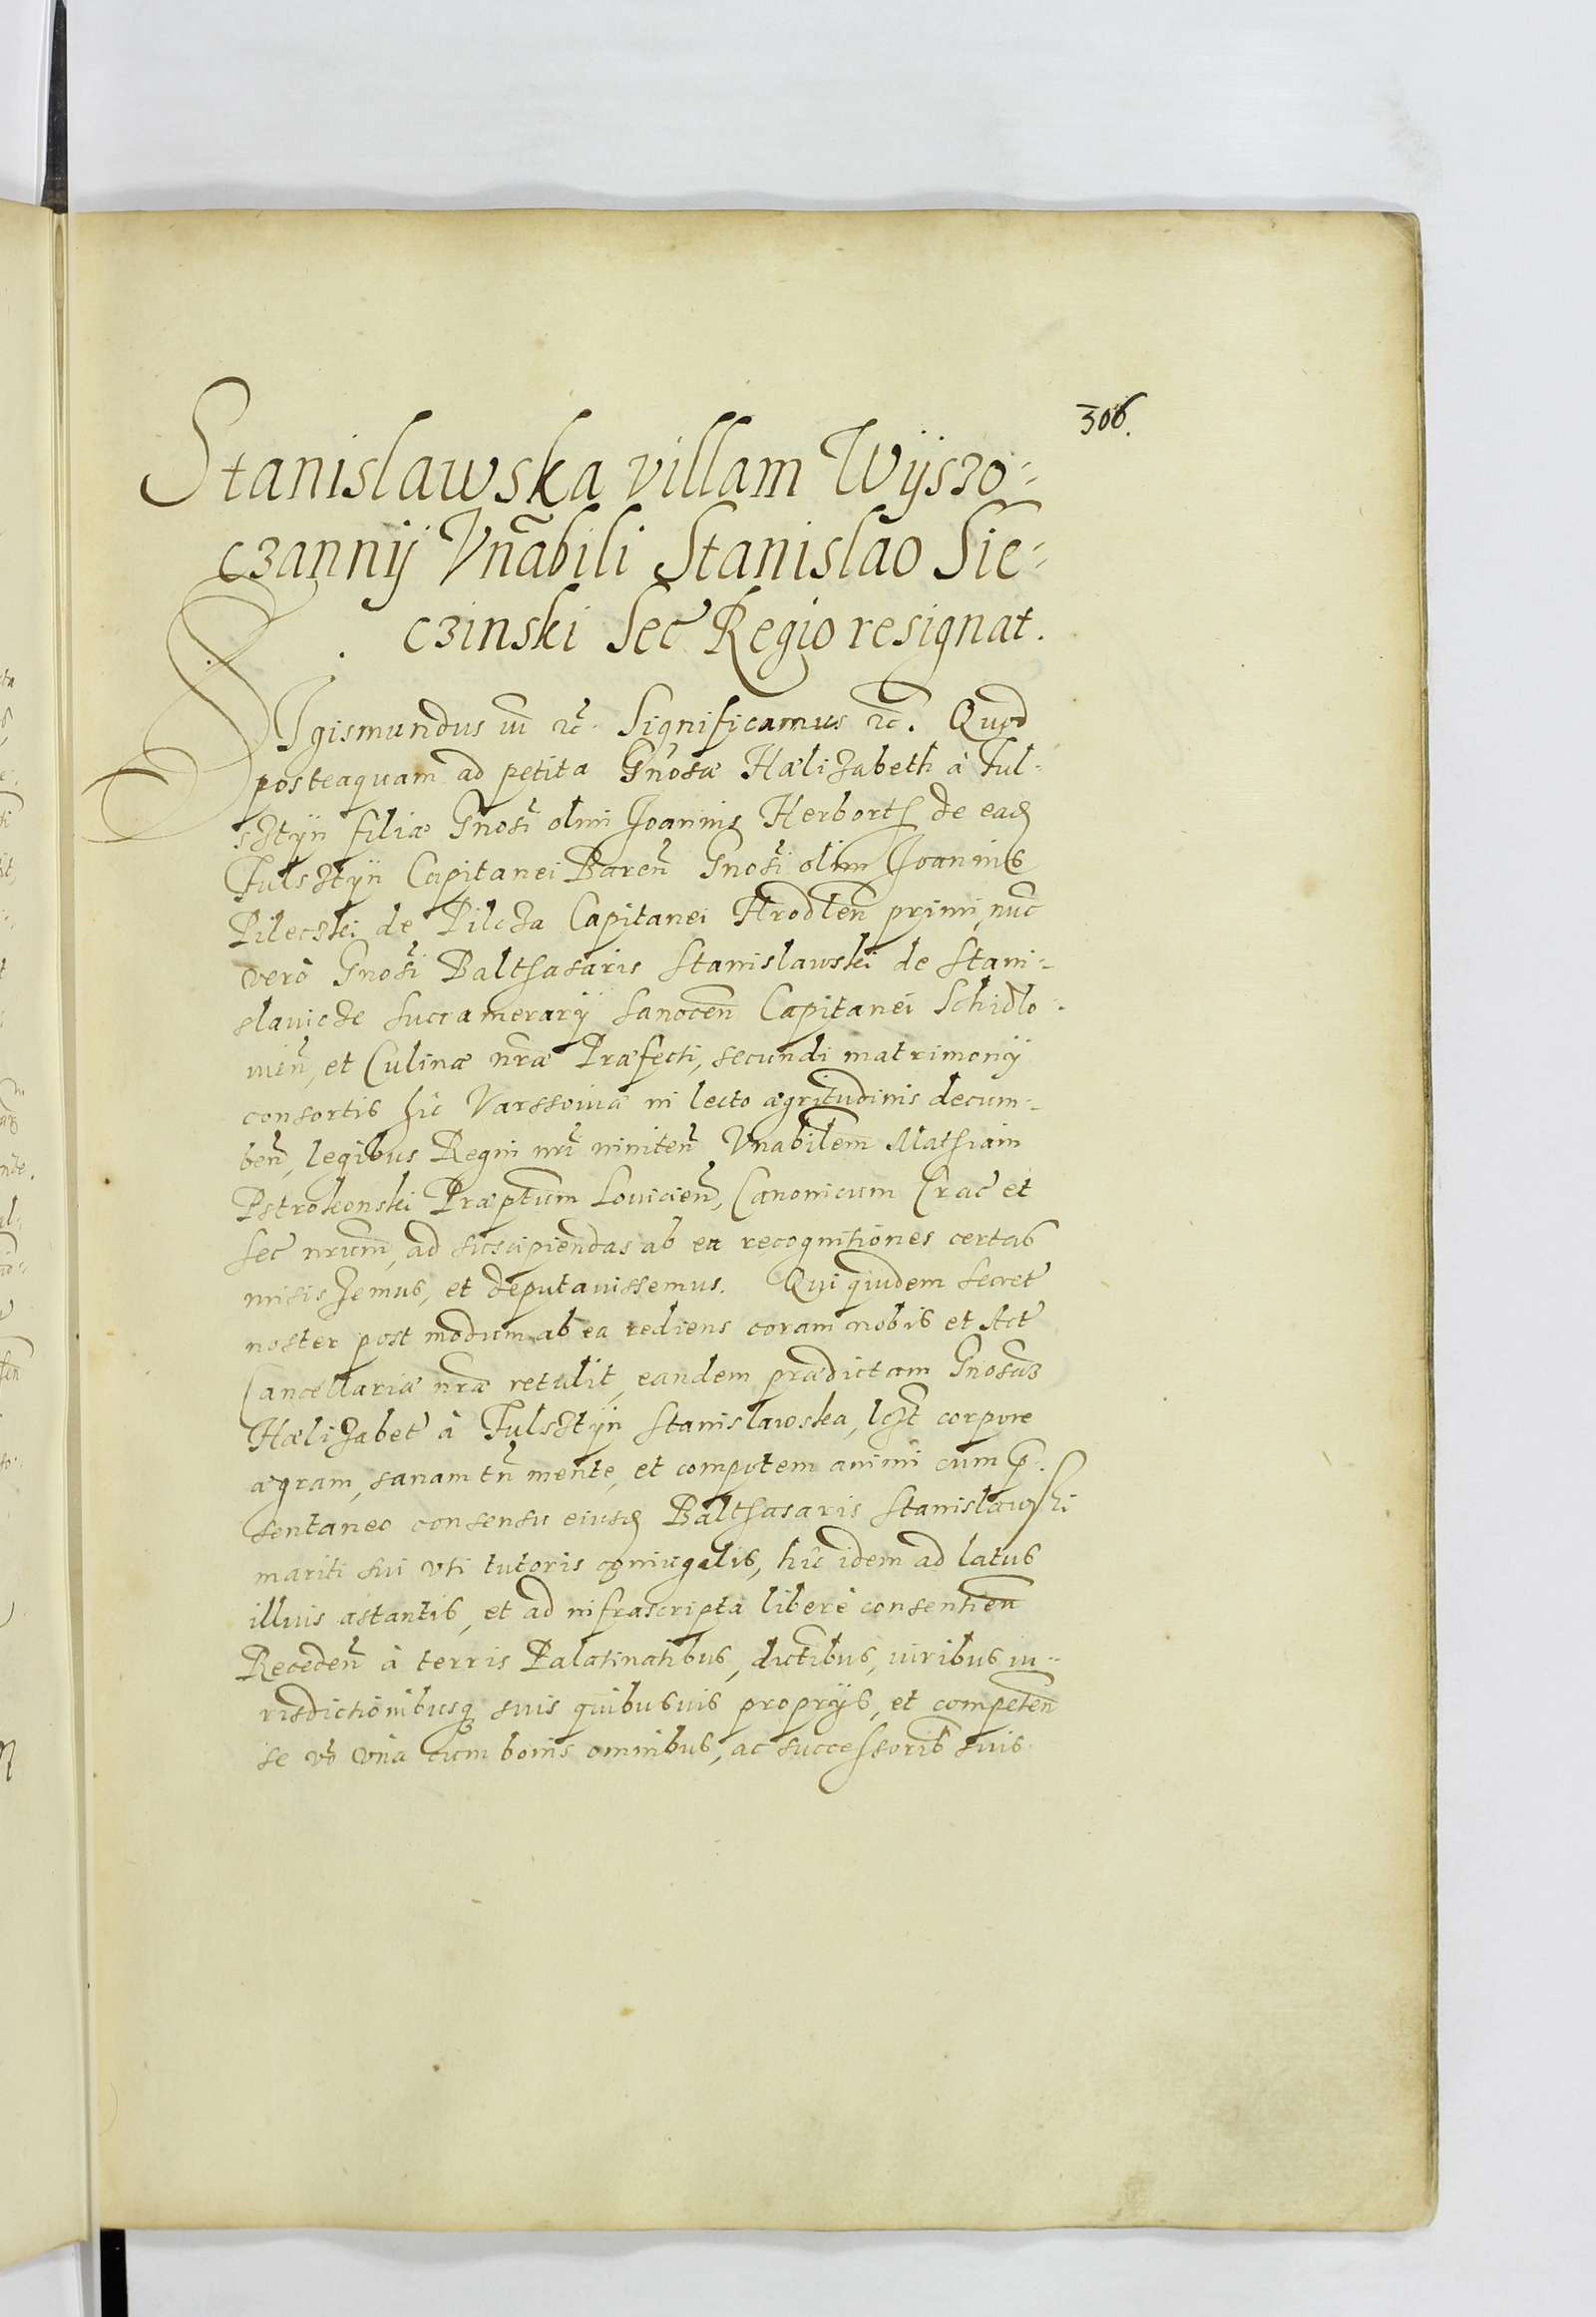 306.
Stanislawska villam Wijszo-
czannij Vnabili Stanislao Sie-
czinski Sec Regio resignat.
SIgismundus iii etc. Significamus etc. Quod
posteaquam ad petita Gnosæ Hælizabeth à Ful-
sztijn filiæ Gnosi olim Joannis Herbort de ead
Fulsztijn Capitanei Baren Gnosi olim Joannis
Pileczki de Pilcza Capitanei Hrodlen primi, nuc
verò Gnosi Balthasaris Stanislawski de Stani-
slavicze Succamerarij Sanocen Capitanei Schidlo-
uien, et Culinæ nræ Præfecti, secundi matrimonij
consortis hic Varssoviæ in lecto ægritudinis decum-
ben, legibus Regni nri initen Vnabilem Mathiam
Pstrokonski Præptum Lovicien, Canonicum Crac et
Sec nrum, ad suscipiendas ab ea recognitiones certas
misissemus, et deputavissemus. Qui quidem Secret
noster post modum ab ea rediens coram nobis et Act
Cancellariæ nræ retulit, eandem prædictam Gnosam
Hælizabet à Fulsztijn Stanislawska, lszt corpore
ægram, sanam tn mente, et compotem animi cum p-
sentaneo consensu eiusd Balthasaris Stanislawski
mariti sui vti tutoris coniugalis, hic idem ad latus
illius astantis, et ad infrascripta liberè consentien
Receden à terris Palatinatibus, dictibus, iuribus iu-
risdictionibusq suis quibusuis proprijs, et competen
se vo vnà cum bonis omnibus, ac successorib suis